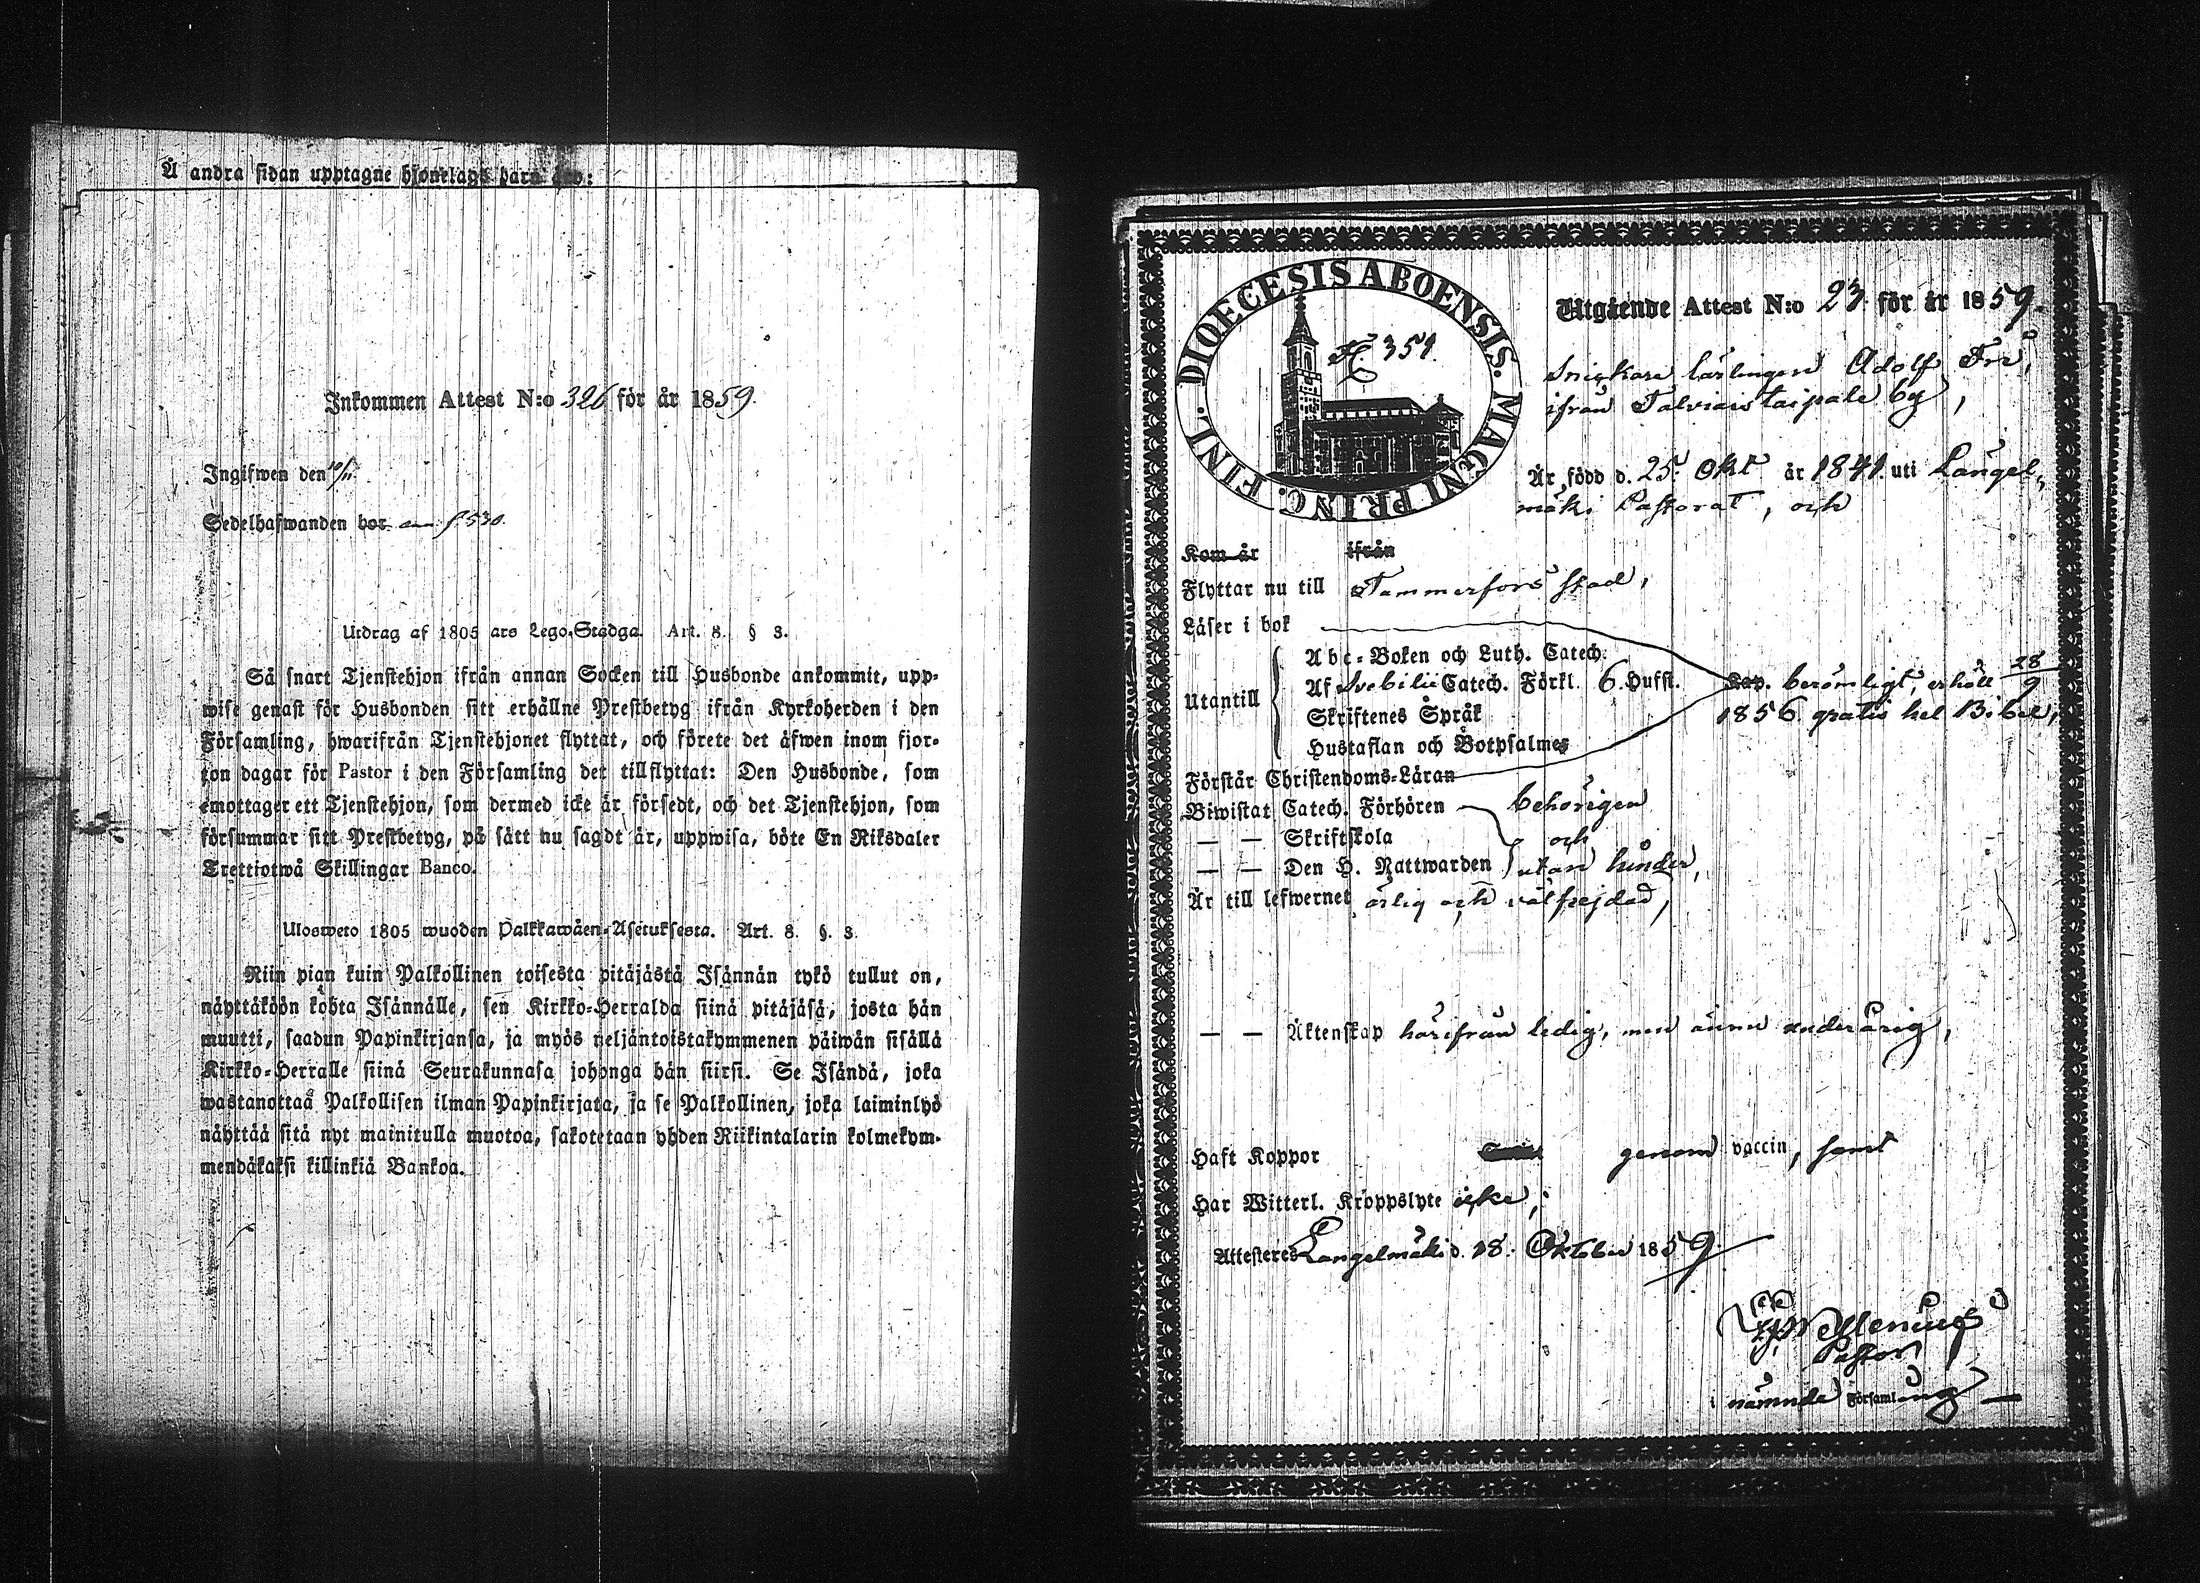 Å andra sidan upptagne hjonelags barn äro:
Inkommen Attest N:o 326 för år 1859.
Ingifwen den 10/11
Sedelhafwanden bor p 530.
Utdrag af 1805 års Lego-Stadga. Art. 8. § 3.
Så snart Tjenstehjon ifrån annan Socken till Husbonde ankommit, upp-
wise genast för Husbonden sitt erhållne Prestbetyg ifrån Kyrkoherden i den
Församling, hwarifrån Tjenstehjonet flyttat, och förete det äfwen inom fjor-
ton dagar för Pastor i den Församling det tillflyttat: Den Husbonde, som
emottager ett Tjenstehjon, som dermed icke är försedt, och det Tjenstehjon, som
försummar sitt Prestbetyg, på sätt nu sagdt är, uppwisa, böte En Riksdaler
Trettiotwå Skillingar Banco.
Ulosweto 1805 wuoden Palkkawäen-Asetuksesta. Art. 8. §. 3.
Niin pian kuin Palkollinen toisesta pitäjästä Isännän tykö tullut on,
näyttäköön kohta Isännälle, sen Kirkko-Herralda siinä pitäjäsä, josta hän
muutti, saadun Papinkirjansa, ja myös neljäntoistakymmenen päiwän sisällä
Kirkko-Herralle siinä Seurakunnasa johonga hän siirsi. Se Isändä, joka
wastanottaa Palkollisen ilman Papinkirjata, ja se Palkollinen, joka laiminlyö
näyttää sitä nyt mainitulla muotoa, sakotetaan yhden Riikintalarin kolmekym-
mendäkaksi killinkiä Bankoa.
DIOECESIS ABOENSIS. MAGNI PRINC. FINL.
351.
Utgående Attest N:o 23 för år 1859.
Snickare lärlingen Adolf Fri,
ifrån Talviaistaipale by,
Är född d. 25. Okt år 1841. uti Längel-
mäki Pastorat, och
Kom år ifrån
Flyttar nu till Tammerfors stad,
Läser i bok
Utantill
Abc-Boken och Luth. Catech.
Af Svebilii Catech. Förkl. 6. Hufst. Kap. berömligt, erhöll 28/9
Skriftenes Språk 1856 gratis hel Bibel,
Hustaflan och Botpsalmer
Förstår Christendoms-Läran
Biwistat Catech. Förhören behörigen
— — Skriftskola och
— — Den H. Nattwarden utan hinder,
Är till lefwernet ärlig och välfrejdad,
— — Äktenskap härifrån ledig, men ännu underårig,
Haft Koppor genom vaccin, samt
Har Witterl. Kroppslyte icke;
Attesteres Längelmäki d. 18. Oktober 1859.
Pastor
i nämnde Församling